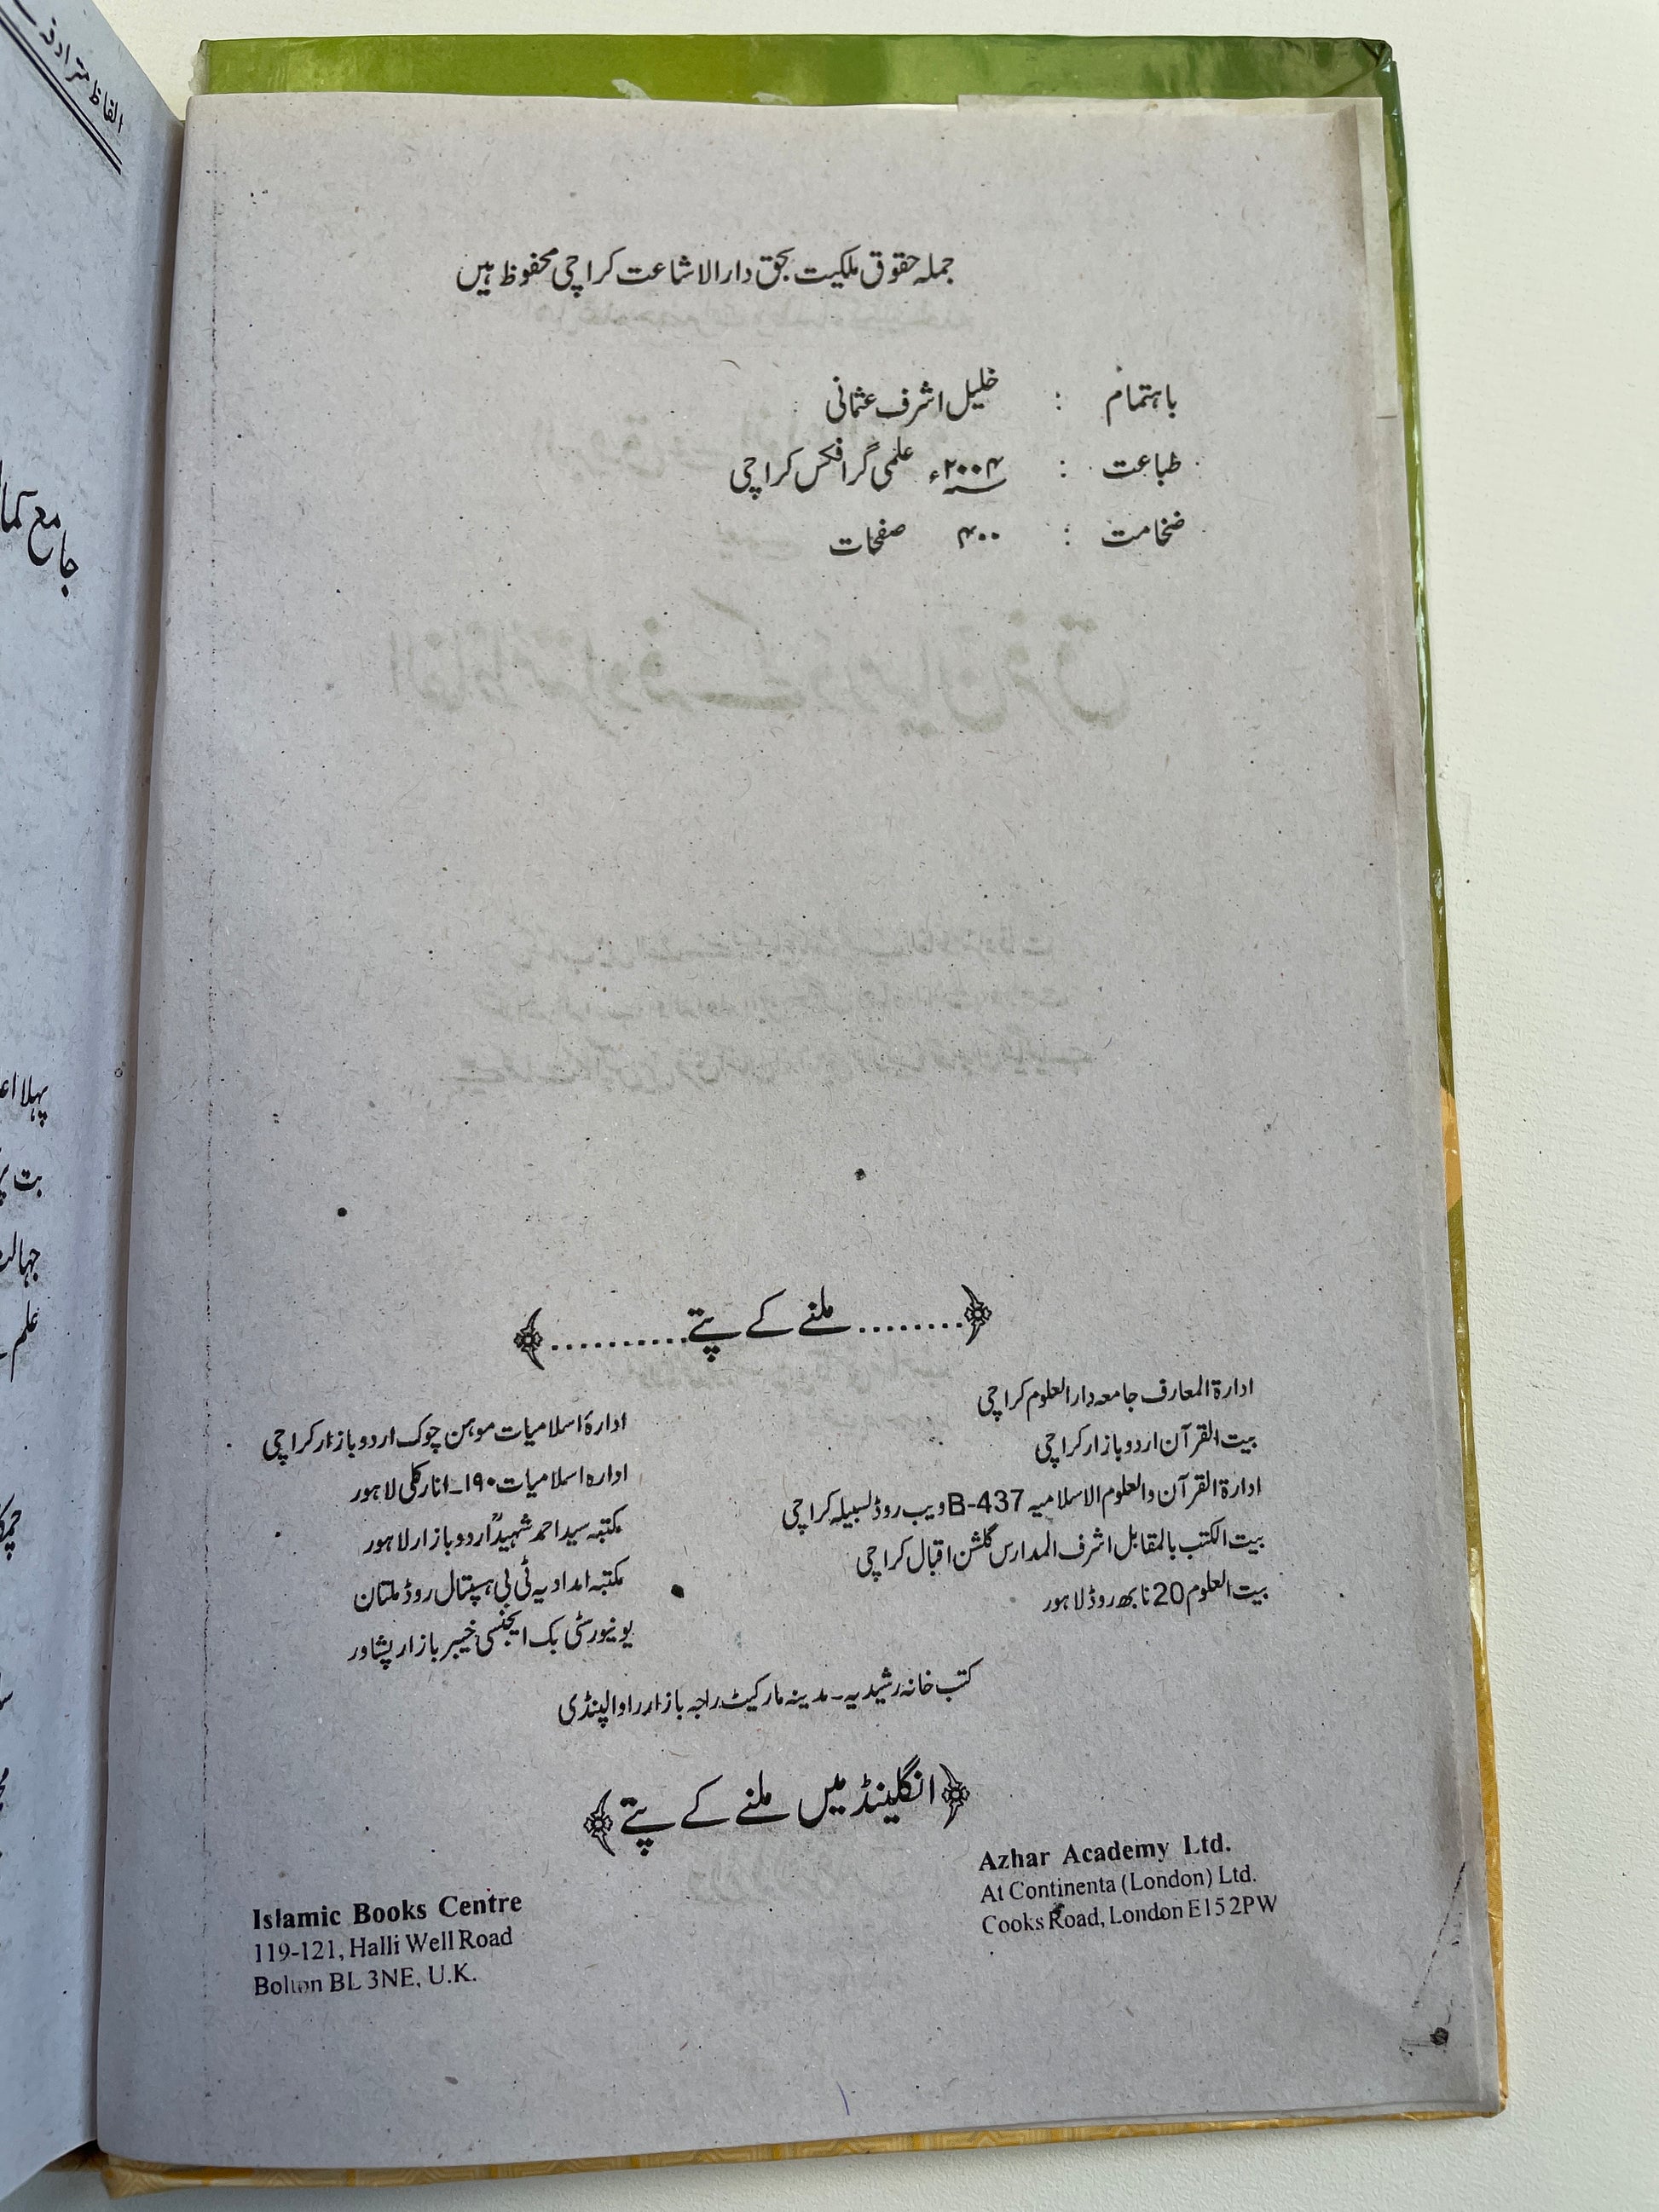 الفاظ مترادفہ
جملہ حقوق ملکیت بحق دارالاشاعت کراچی محفوظ ہیں
باہتمام : خلیل اشرف عثمانی
طباعت : ۲۰۰۴ء علمی گرافکس کراچی
ضخامت : ۴۰۰ صفحات
﴿........ملنے کے پتے..........﴾
ادارۃ المعارف جامعہ دارالعلوم کراچی
بیت القرآن اردو بازار کراچی
ادارۃ القرآن والعلوم الاسلامیہ 437-B ویب روڈ لسبیلہ کراچی
بیت الکتب بالمقابل اشرف المدارس گلشن اقبال کراچی
بیت العلوم 20 نابھ روڈ لاہور
ادارۂ اسلامیات موہن چوک اردو بازار کراچی
ادارہ اسلامیات ۱۹۰۔انارکلی لاہور
مکتبہ سید احمد شہیدؒ اردو بازار لاہور
مکتبہ امدادیہ ٹی بی ہسپتال روڈ ملتان
یونیورسٹی بک ایجنسی خیبر بازار پشاور
کتب خانہ رشیدیہ۔ مدینہ مارکیٹ راجہ بازار راولپنڈی
﴿انگلینڈ میں ملنے کے پتے﴾
Azhar Academy Ltd.
At Continenta (London) Ltd.
Cooks Road, London E15 2PW
Islamic Books Centre
119-121, Halli Well Road
Bolton BL 3NE, U.K.